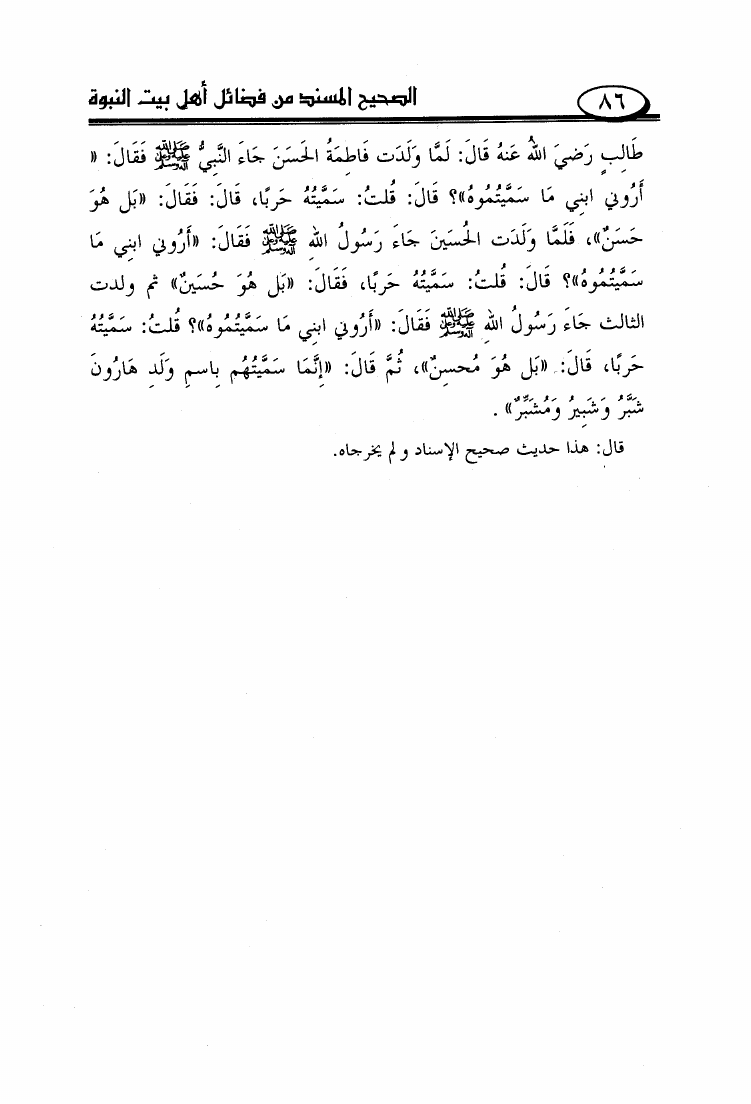 ٨٦
الصحيح المسند من فضائل أهل بيت النبوة
طَالِبٍ رَضيَ اللهُ عَنهُ قَالَ: لَمَّا وَلَدَت فَاطِمَةُ الحَسَنَ جَاءَ النَّبِيُّ ﷺ فَقَالَ: «
أَرُوني ابنِي مَا سَمَّيتُمُوهُ»؟ قَالَ: قُلتُ: سَمَّيتُهُ حَربًا، قَالَ: فَقَالَ: «بَل هوَ
حَسَنٌ»، فَلَمَّا وَلَدَت الحُسَينَ جَاءَ رَسُولُ اللهِ ﷺ فَقَالَ: «أَرُوني ابنِي مَا
سَمَّيتُمُوهُ»؟ قَالَ: قُلتُ: سَمَّيتُهُ حَربًا، فَقَالَ: «بَل هُوَ حُسَينٌ» ثم ولدت
الثالث جَاءَ رَسُولُ اللهِ ﷺ فَقَالَ: «أَرُوني ابنِي مَا سَمَّيتُمُوهُ»؟ قُلتُ: سَمَّيتُهُ
حَربًا، قَالَ: «بَل هُوَ مُحسِنٌ»، ثُمَّ قَالَ: «إِنَّمَا سَمَّيتُهُم بِاسمِ وَلَدِ هَارُونَ
شَبَّرُ وَشَبِيرُ وَمُشَبِّرٌ» .
قال: هذا حديث صحيح الإسناد ولم يخرجاه.